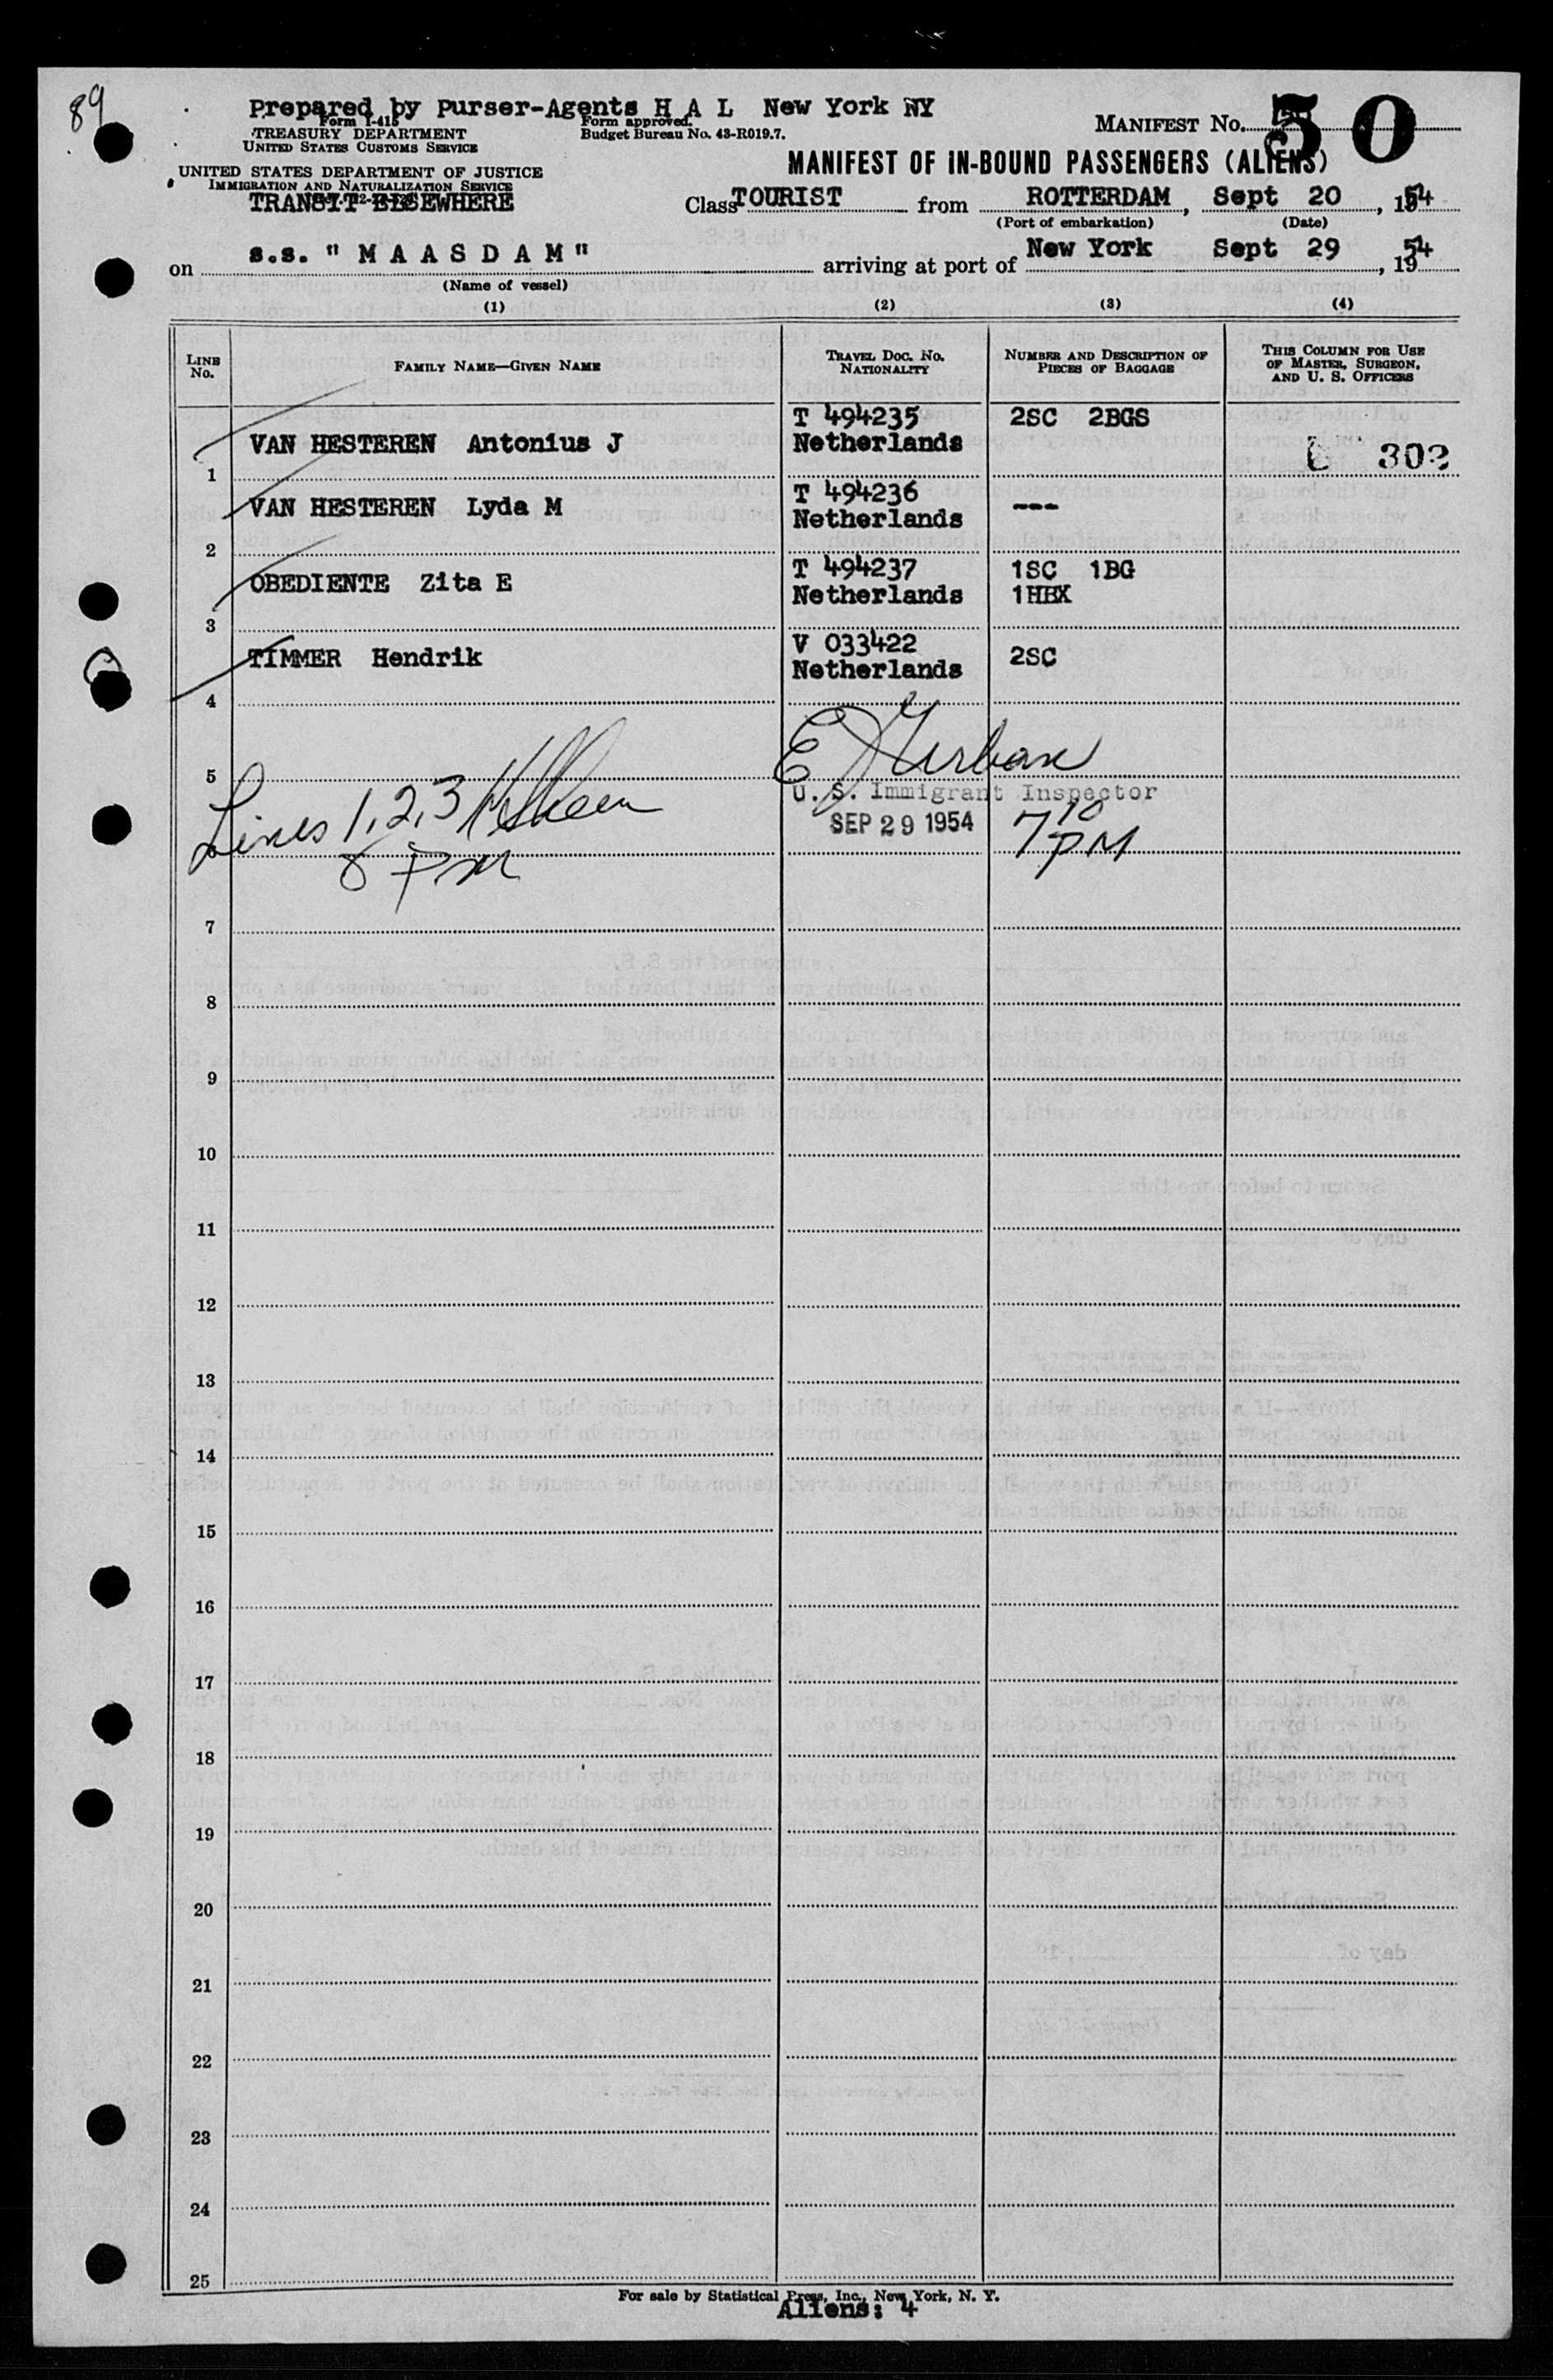 89
Prepared by Purser-Agents H A L New York NY
Form I-415
TREASURY DEPARTMENT
UNITED STATES CUSTOMS SERVICE
Form approved.
Budget Bureau No. 43-R019.7.
MANIFEST No. 50
UNITED STATES DEPARTMENT OF JUSTICE
IMMIGRATION AND NATURALIZATION SERVICE
TRANSIT ELSEWHERE
MANIFEST OF IN-BOUND PASSENGERS (ALIENS)
Class TOURIST from ROTTERDAM, Sept 20, 1954
(Port of embarkation) (Date)
on s.s. " M A A S D A M " arriving at port of New York Sept 29, 1954
(Name of vessel)
(1) (2) (3) (4)
LINE No. FAMILY NAME—GIVEN NAME TRAVEL DOC. NO. NATIONALITY NUMBER AND DESCRIPTION OF PIECES OF BAGGAGE THIS COLUMN FOR USE OF MASTER, SURGEON, AND U. S. OFFICERS
1 VAN HESTEREN Antonius J T 494235 Netherlands 2SC 2BGS 302
2 VAN HESTEREN Lyda M T 494236 Netherlands ---
3 OBEDIENTE Zita E T 494237 Netherlands 1SC 1BG 1HBX
4 TIMMER Hendrik V 033422 Netherlands 2SC
5
U. S. Immigrant Inspector
Lines 1,2,3
SEP 29 1954 7 10 PM
8 PM
7
8
9
10
11
12
13
14
15
16
17
18
19
20
21
22
23
24
25
For sale by Statistical Press, Inc., New York, N. Y.
Aliens: 4